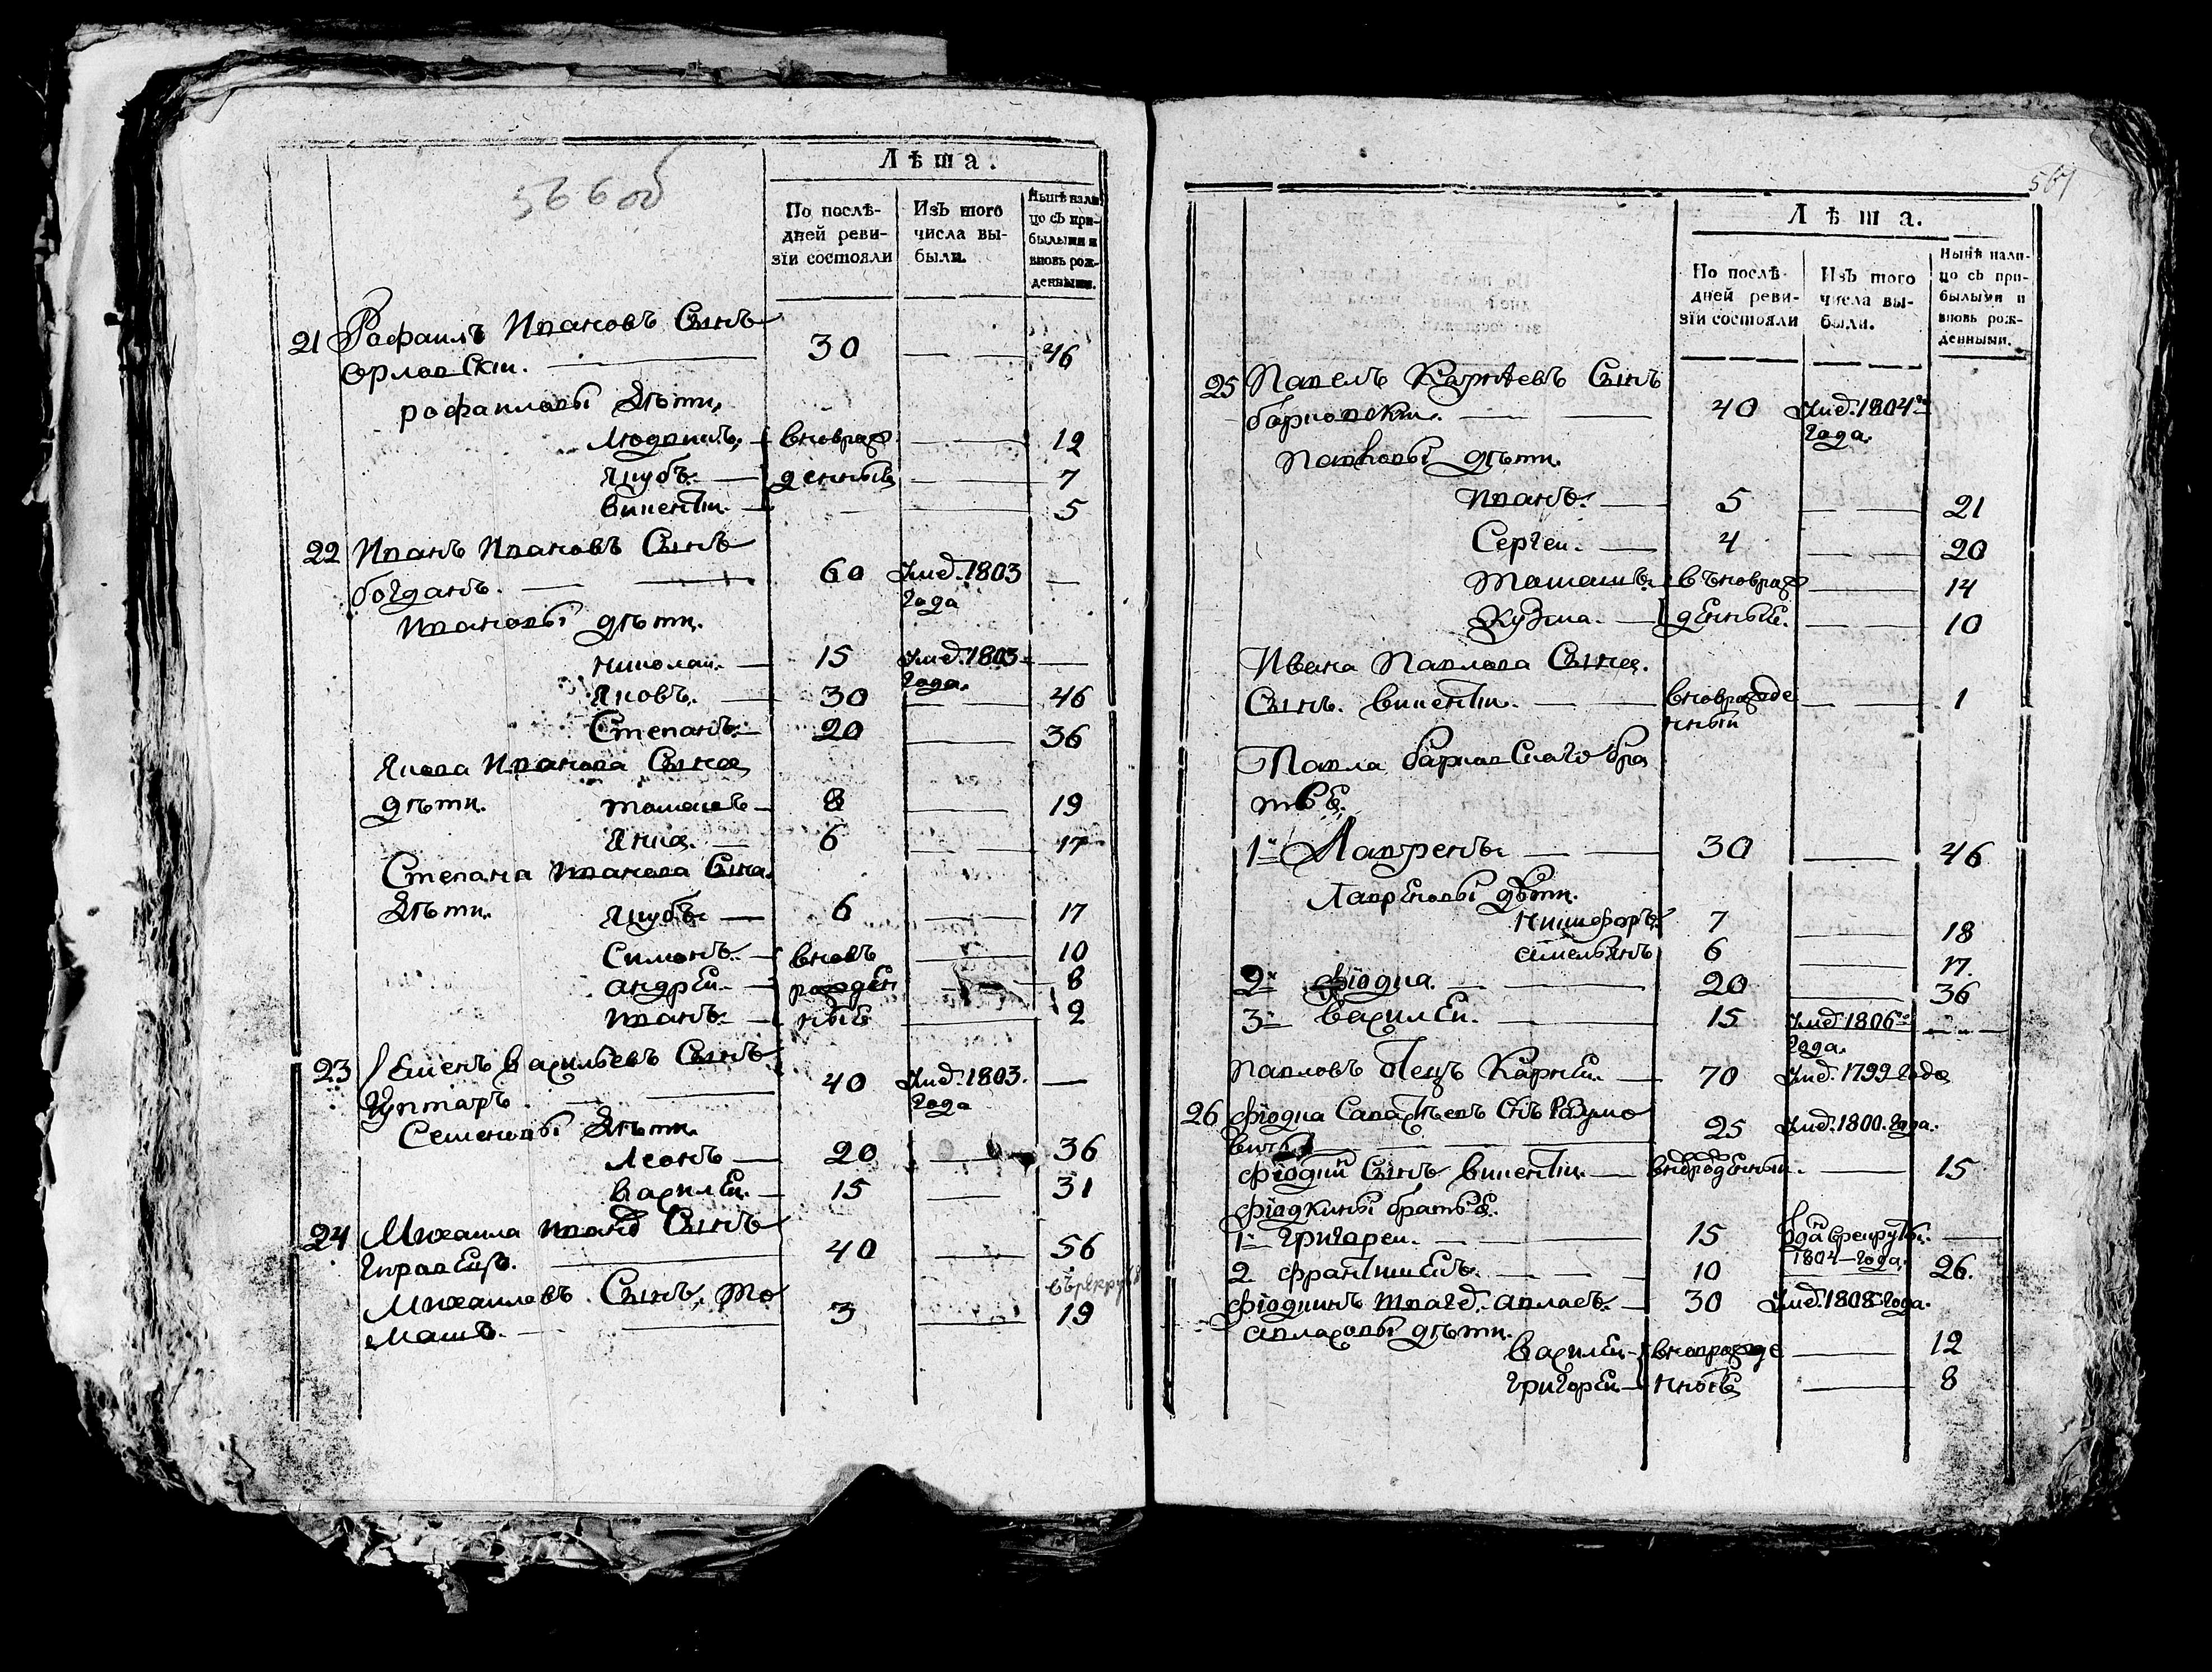 566 об
Лѣта.
По послѣ-
дней реви-
зіи состояли
Изъ того
числа вы-
были.
Нынѣ нали-
цо съ при-
былыми и
вновь рож-
денными.
21 Рофаилъ Ивановъ Сынъ
Орловскии. 30 — — 46
рофаиловы дѣти,
Людвикъ, вновраж 12
Якубъ. денныѣ 7
Викентiи. 5
22 Иванъ Ивановъ Сынъ
богданъ. 60 Умер. 1803 —
года
Ивановы дѣти.
николаи. 15 Умер. 1803 —
года.
Яковъ. 30 — — 46
Степанъ. 20 — 36
Якова Иванова Сына
дѣти. томашъ 8 — 19
Янка. 6 — 17
Степана Иванова Сына
Дѣти. Якубъ 6 — 17
Симонъ. вновъ 10
андрЕи. рожден 8
иванъ. ныѣ 2
23 СЕменъ василъевъ Сынъ
40 Умер. 1803. —
года
Семеновы Дѣти.
Леонъ 20 — 36
василЕи. 15 — 31
24 Михаила иванов Сынъ
40 — 56
въ рекруты
Михаиловъ Сынъ, то
машъ. 3 — 19
567
Лѣта.
По послѣ-
дней реви-
зіи состояли
Изъ того
числа вы-
были.
Нынѣ нали-
цо съ при-
былыми и
вновь рож-
денными.
25 Павелъ Карнѣевъ Сынъ
барновскiи. 40 Умер. 1804го
года.
Павловы дѣти.
иванъ. 5 — — 21
Сергеи. 4 — — 20
томашъ. въновраж — 14
Кузма. денныЕ. — — 10
Ивана Павлова Сына.
Сынъ. викентiи. вноврожде — — 1
нныи
Павла барновского бра
тьЕ.
1й Лавренъ 30 — 46
ЛаврЕновы дѣти.
никифоръ 7 — 18
емельянъ 6 — 17.
2й фiодка. 20 — 36
3й василЕи. 15 Умер. 1806го — —
года.
Павловъ Отецъ КарнЕи. 70 Умер. 1799 года
26 фiодка Сын Разумо
вичъ 25 Умер. 1800. года.
фiодкин Сынъ викентiи. вновроденныи. — 15
фiодкины братьЕ.
1й григореи. 15 Отдан врекруты. —
1804 года.
2 францишЕкъ. 10 — 26.
фiодкинъ 30 Умер. 1808 года.
дѣти.
василЕи вновражде — 12
григорЕи ныѣ — 8